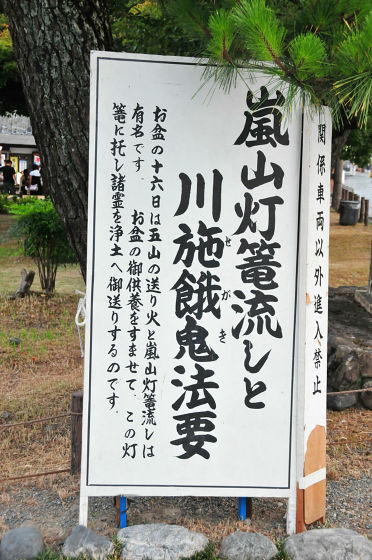 嵐山灯篭流しと
川施餓鬼法要
せがき
お盆の十六日は五山の送り火と嵐山灯篭流しは
有名です．お盆の御供養をすませて．この灯
篭に托し諸霊を浄土へ御送りするのです．
関係車両以外進入禁止